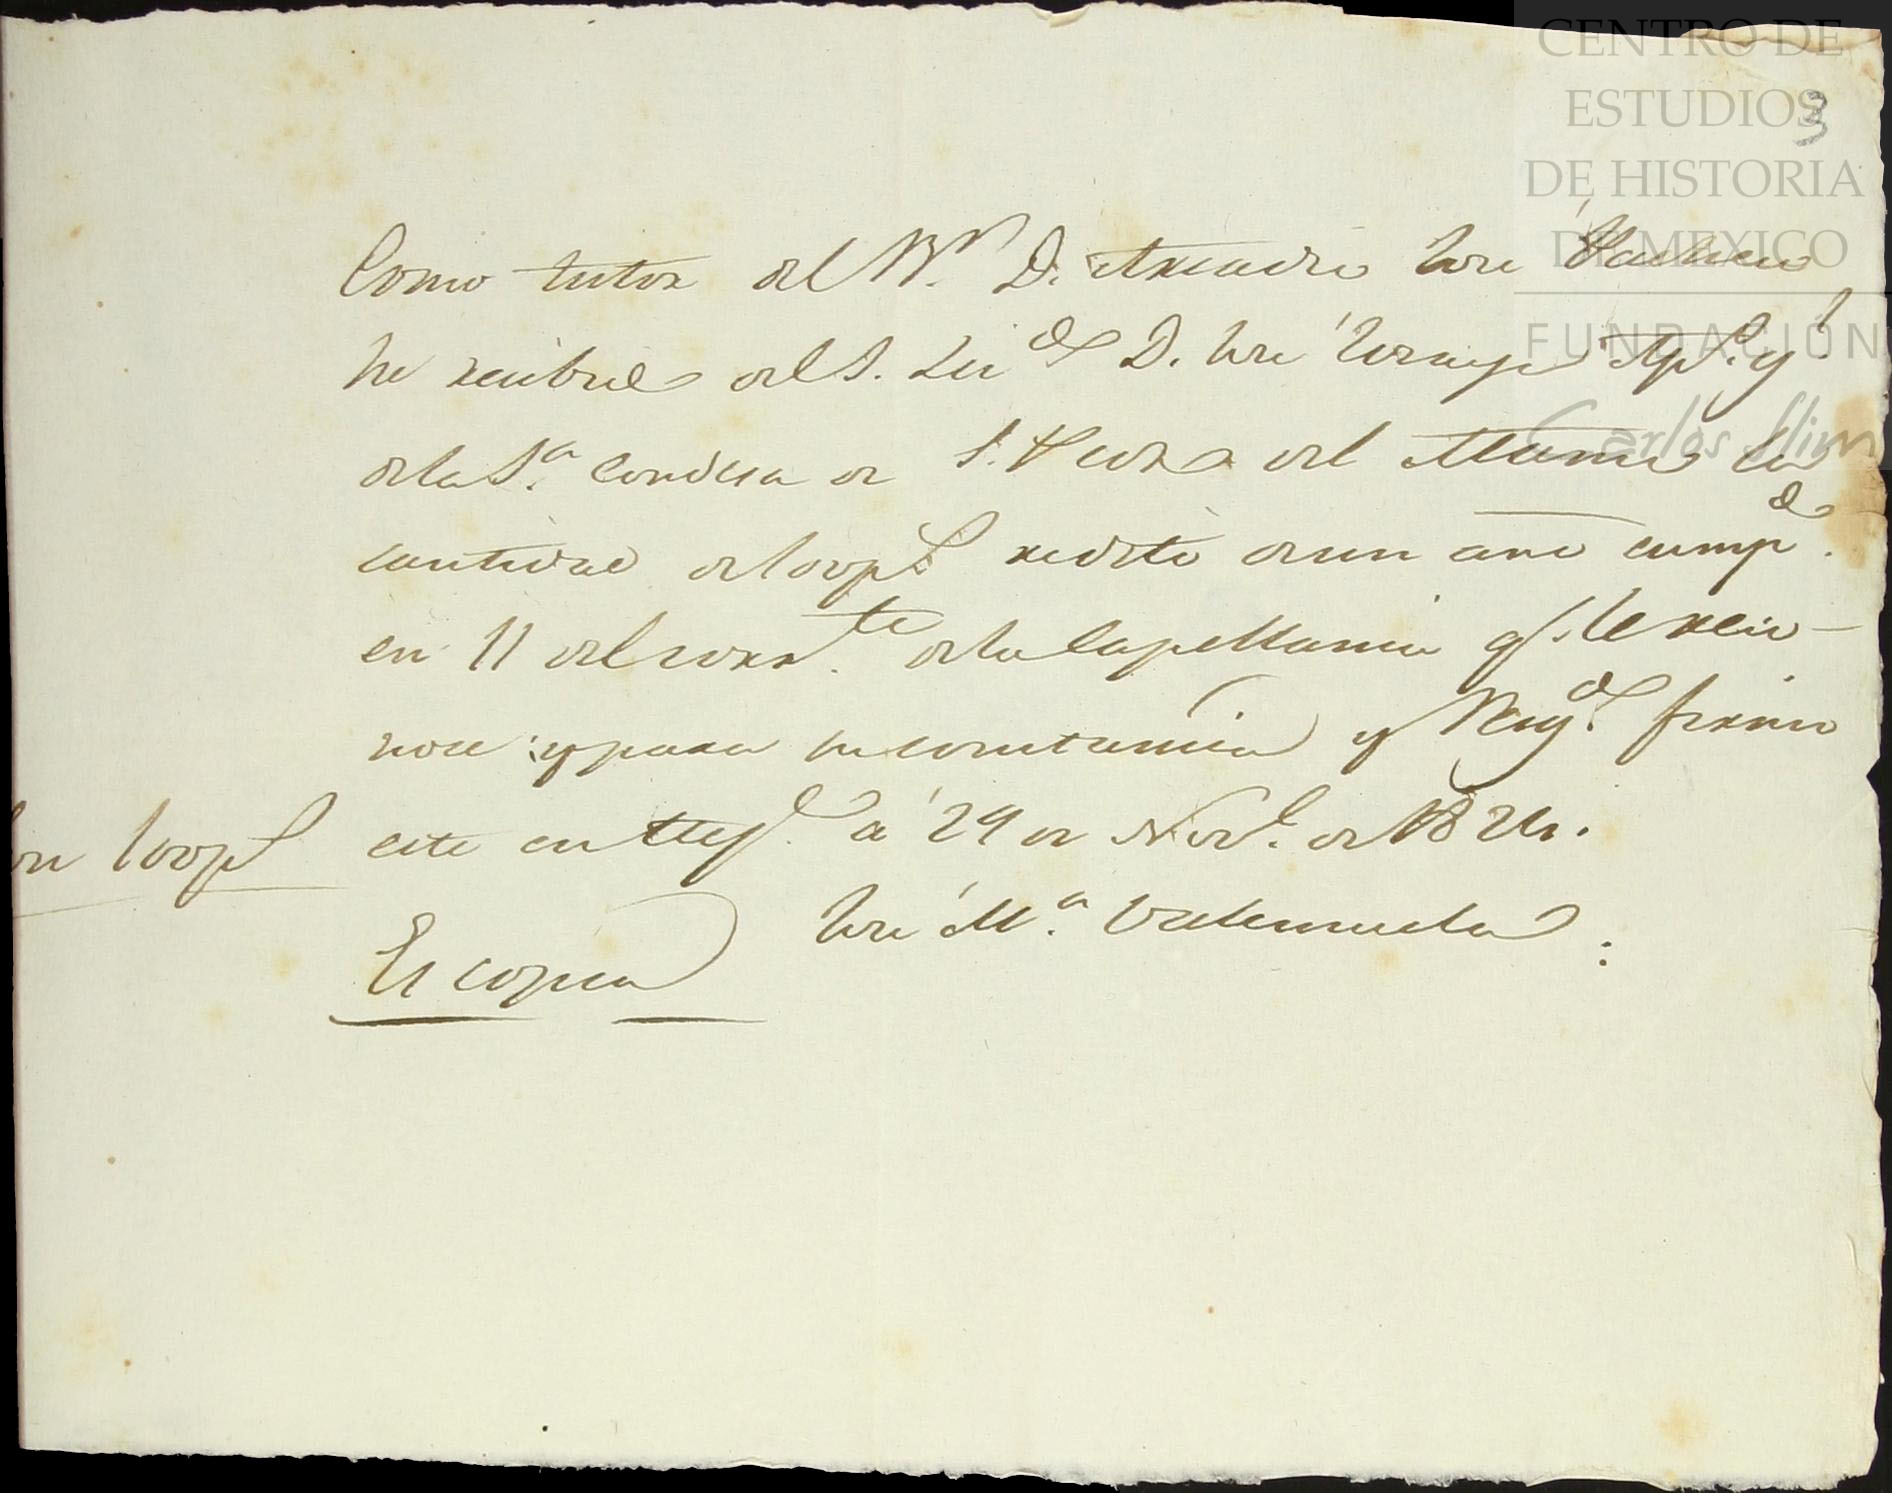 CENTRO DE
ESTUDIOS
DE HISTORIA
DE MEXICO
FUNDACIÓN
Carlos Slim
3
Como tutor del Br. D. Arcadio José Pacheco
he recibido del S. Lic.do D. José Apo. gl.
de la Sa. Condesa de S. Pedro del Alamo la
cantidad de 100 ps. redito de un año cumpdo.
en 11 del corrte. de la Capellania q. le reco-
noce: y para su constancia y resgdo. firmo
este en Mejo. á 29 de Nove. de 1824.
Son 100 ps.
José Ma. Valenzuela
Es copia